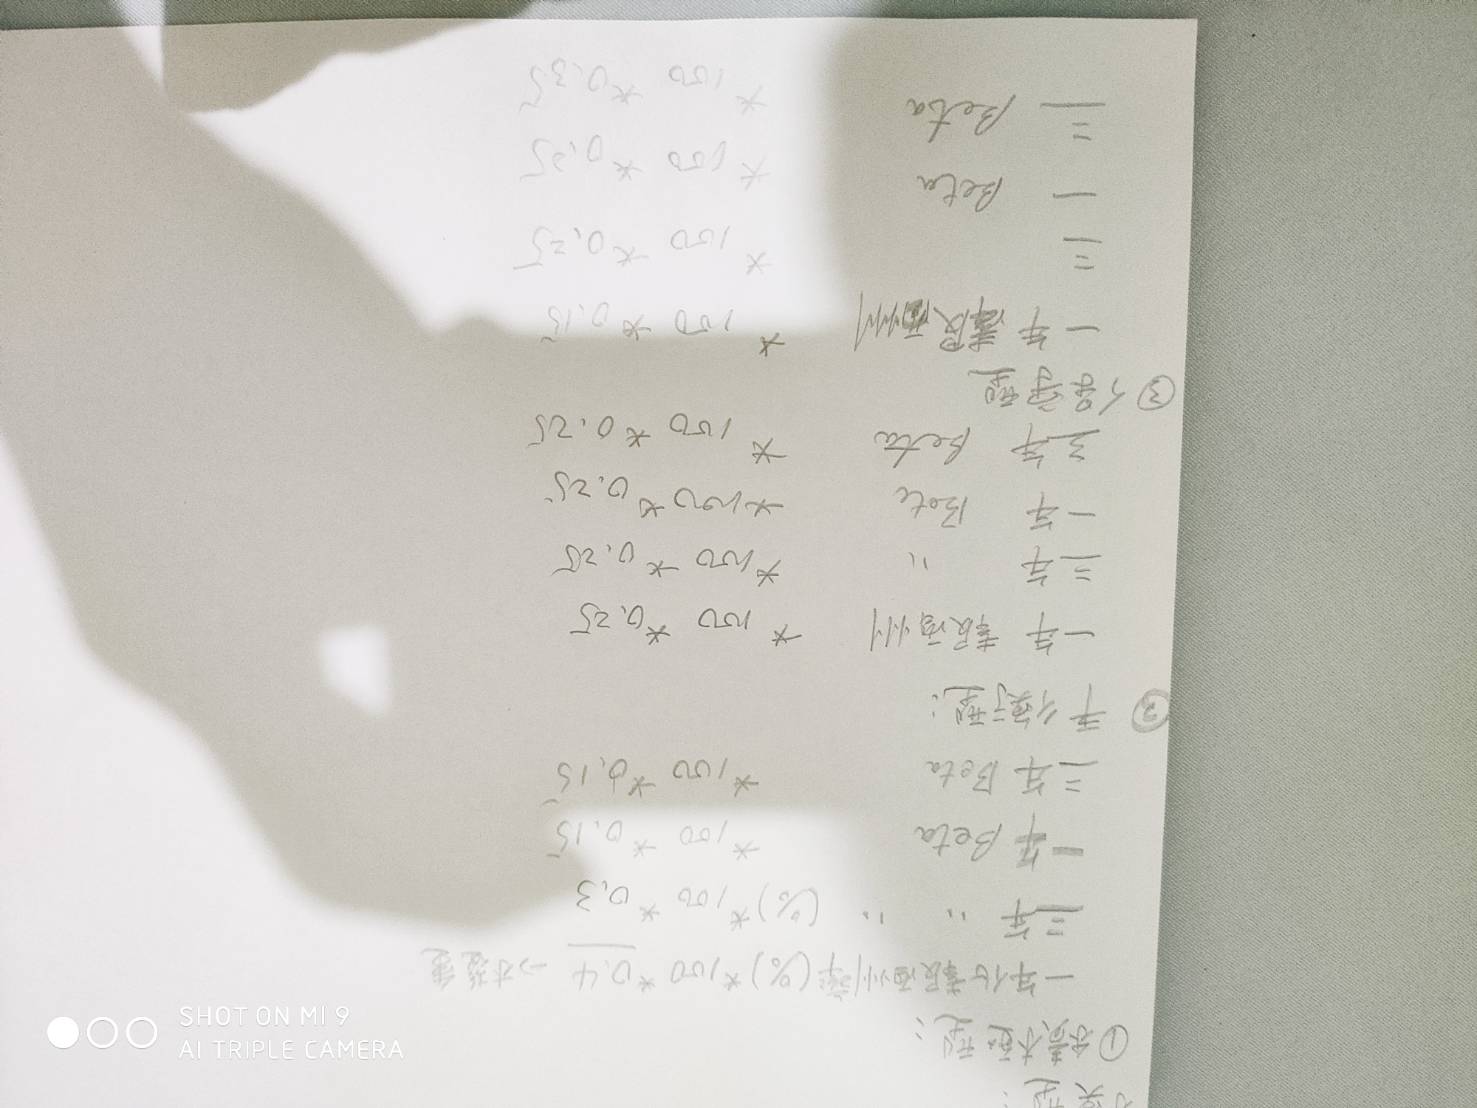 模型：
①積極型：
一年化報酬率(%)*100*0.4 →權重
三年 〃 〃 (%)*100*0.3
一年Beta *100 *0.15
三年Beta *100 *0.15
② 平衡型：
一年 報酬 *100 *0.25
三年 〃 *100 *0.25
一年 Beta *100 *0.25
三年 Beta *100 *0.25
③保守型
一年 報酬 *100 *0.15
三 *100 *0.25
一 Beta *100 *0.25
三 Beta *100 *0.35
SHOT ON MI 9
AI TRIPLE CAMERA